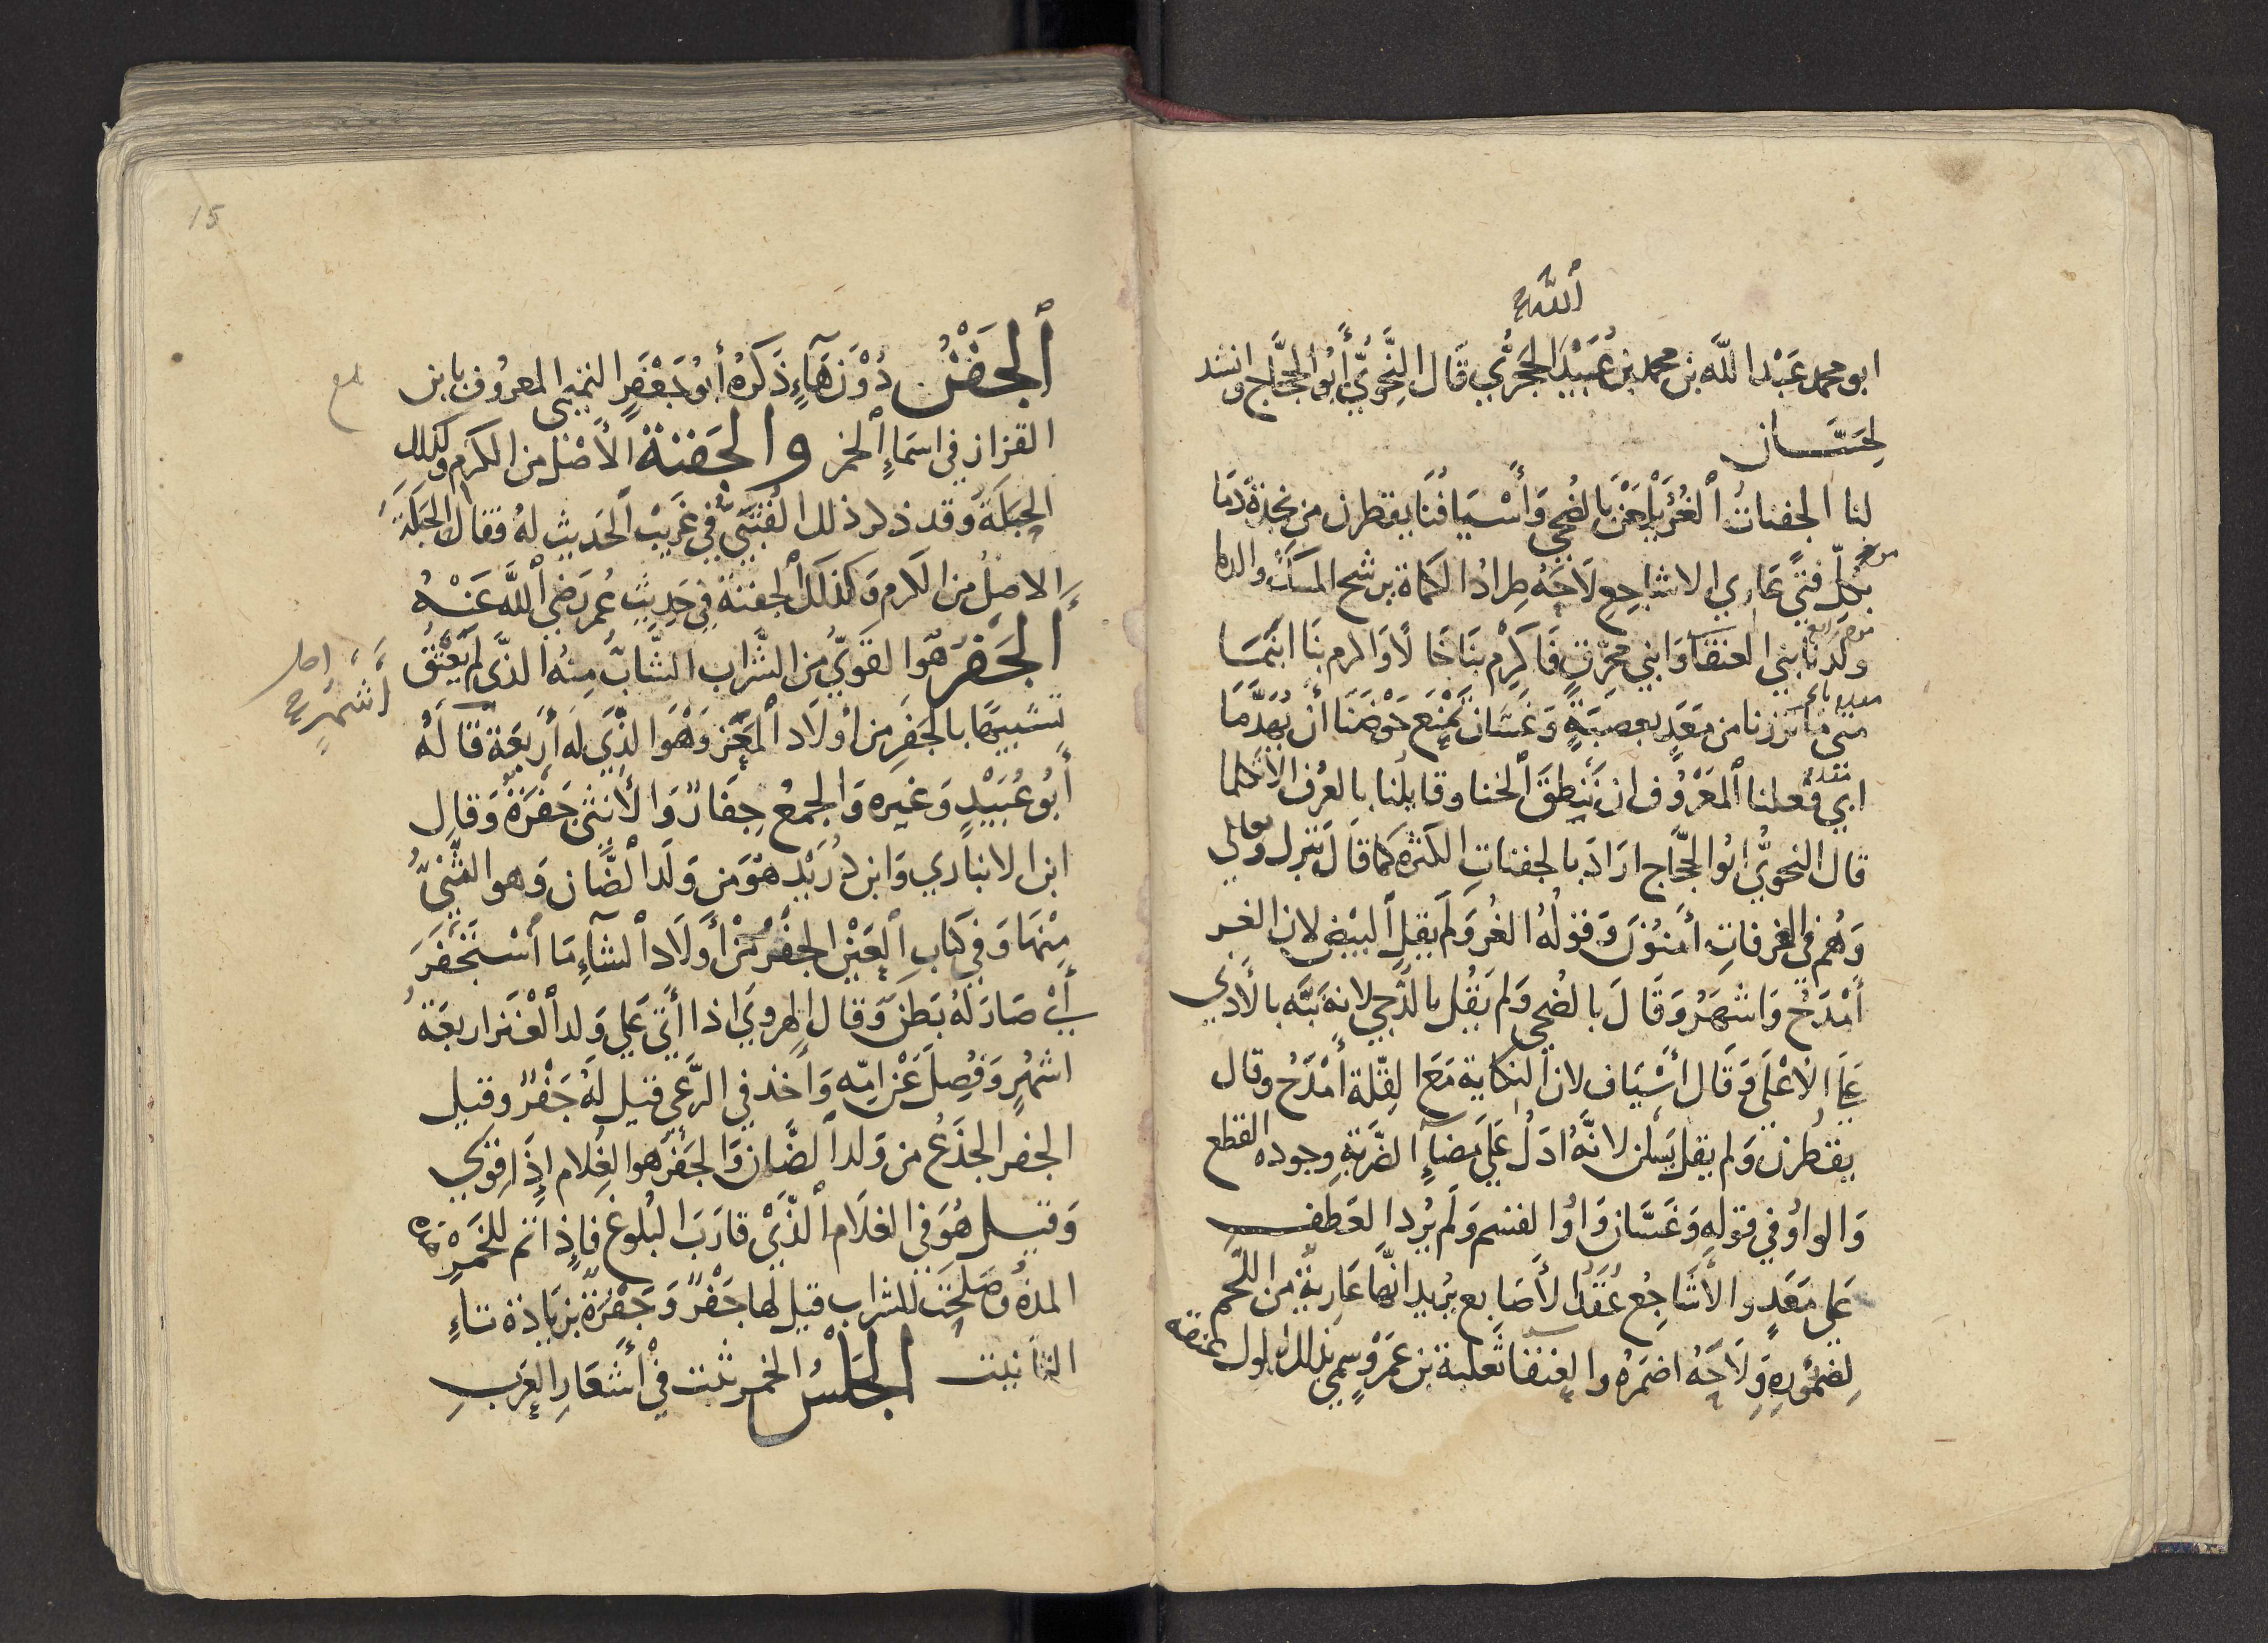 ٱللَّه
ابو محمد عَبْد اللَّه بن محمد بن عُبَيْد الحَجْرِي قَالَ النَّحْوِيُّ أَبُو الحَجَّاج وانشد
لِحَسَّــــان
لنا الجفناتُ ٱلغُرُّ يَلْمَعْنَ بالضُحى وَأَسْيَافُنَا يقطرن من نجدَةٍ دَمَا
بكلِّ فتًى عَاري الاشاجِعِ لَاحَهُ طِرادُ الكماة يرشح المسكَ والدما
وَلَدْنَا بني العنقآ وَابني محرّقٍ فَأَكْرِم بنَا خَالًا وَاكرم بنَا ابنَمَــا
متى مَا تزرنا من مَعَدٍ بعصبَةٍ وَغَسَّانَ نَمْنَع حَوْضَنَا أن يُهَدَّمَا
ابى فعلنا ٱلمَعْرُوفَ ان نَنطِقَ ٱلخنا وقايلُنا بالعُرفِ الا تكلما
قال النحويُّ ابُو الحجَّاج ارَادَ بالجفناتِ الكثرة كمَا قَالَ تعالى
وَهُم في الغرفاتِ أمنُونَ وَقولُهُ الغُر وَلَم يقلِ ٱلبيْض لان الغــر
أَمْدَحُ وَاشْهَرُ وَقَالَ بالضُحى وَلم يَقُل بالدُّجى لانه نبَّه بالأدنى
عَلَى الأعْلَى وَقَال أَسْيَاف لان النكاية مَعَ القِلّة أَمْدَحُ وقال
يقطُرن وَلم يقل يَسِلْنَ لانَّهُ ادَلُ عَلَى مضاءِ الضَّربةِ وجوده القطع
وَالواوُ في قولهِ وَغَسَّانَ وَاوُ القسم وَلَم يُردِ العَطفــــ
عَلى مَعَدٍ والأَشَاجِعُ عُقَدُ الأَصَابع يُريد انَّهَا عَاريةٌ من اللَّحم
لِضمُورِهِ وَلَاحَهُ اضمَرهُ والعنقا ثَعلبة بن عَمَرْوٍ سمى بذلك لطول عنقه
15
ٱلجَفْنُ دُوْنَ هَآءٍ ذَكَرَهُ أَبُوْ جَعْفَرٍ التميمي المعرُوف بابن
القزاز في اسمَاءِ ٱلخمر والجَفنَةُ الأَصْل من الكرْم وكذلك
الحَبَلَةُ وَقد ذكر ذلك القُتَبيّ في غَريبْ ٱلحَديث لهُ فقال الحَبَلَةُ
الاصلُ من الكرم وَكذلكَ ٱلجفنة في حَدِيثِ عُمر رَضي ٱللَّه عَنْــهُ
الجَفْرُ هُوَ القَويُّ من الشَّراب الشَّابُّ مِنهُ الذَّى لم يَعْتُقْ
تشبيهًا بالجَفرِ مِن أَولَاد ٱلمَعَز وَهُوَ الذَّي لَه أَربَعَة
أَشْهُرٍ
قَالَهُ
أَبُو عُبَيْدٍ وَغيره وَالجمعُ جِفَارٌ وَالأُنثى جَفْرَةٌ وَقال
ابن الانباري وَابن دُرَيْدٍ هوَ من وَلَد ٱلضَّان وَهو الثَّنِيُّ
مِنْهَا وَفي كتَابِ ٱلعَيْن الجفْر مِنْ أَولَاد ٱلشآءِ مَا ٱسْتَجْفَرَ
أَيْ صَارَ لَهُ بَطنٌ وَقال الهروي اذا أَتَى عَلى وَلد ٱلعَنز اربعَةُ
اشهُرٍ وَفُصِلَ عَن امِّه وَاخذ في الرَّعي قيل لَهُ جَفْرٌ وقيل
الجفر الجذَعُ من وَلد ٱلضَّان وَالجَفْرُ هو الغُلام إِذَا قوي
وَقيــل هُوَ في الغلَام ٱلَّذي قارَبَ البُلوغ فاذا تم للخَمْرِ هَذه
المدةُ وَصَلحَت للشراب قيل لَها جَفْرٌ وَجَفْرَةٌ بزيَادة تاءِ
التأنيث الجَلْسُ الخمر ثبت فْي أشعَارِ العَربِ